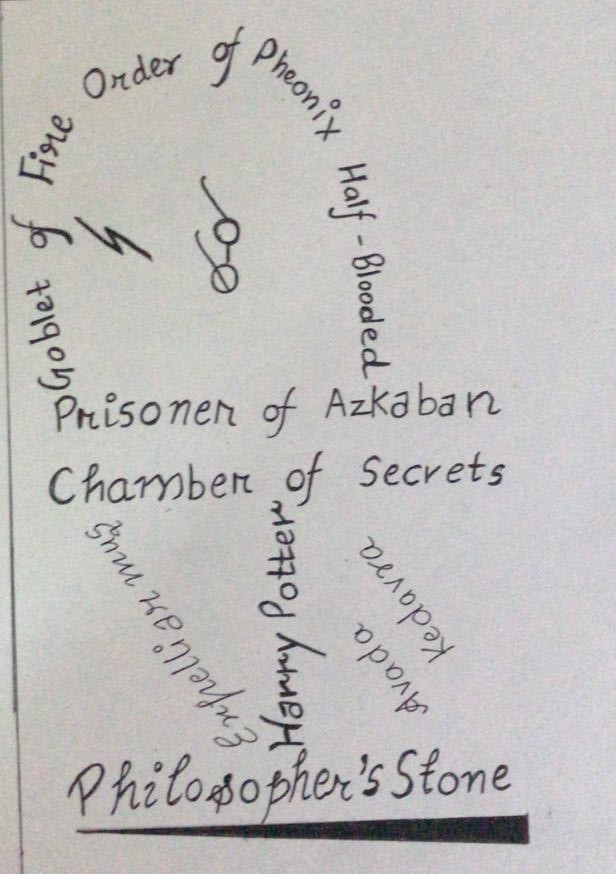 Goblet of Fire Order of Pheonix Half-Blooded
Prisoner of Azkaban
Chamber of Secrets
Expelliarmus
Harry Potter
Avada
Kedavra
Philosopher's Stone